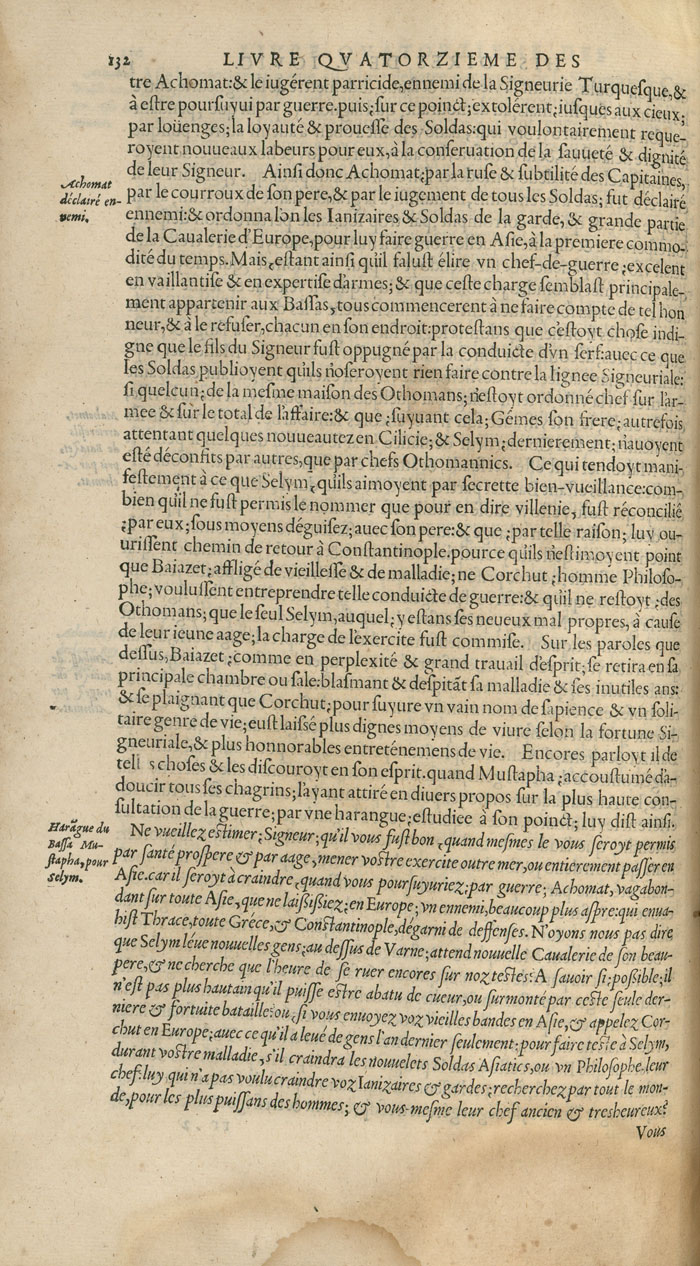 132 LIVRE QVATORZIEME DES
tre Achomat:& le iugérent parricide,ennemi de la Signeurie Turquesque,&
à estre poursuyui par guerre.puis;sur ce poinct;extolérent;iusques aux cieux;
par loüenges;la loyauté & prouesse des Soldas:qui voulontairement reque-
royent nouueaux labeurs pour eux,à la conseruation de la sauueté & dignité
de leur Signeur. Ainsi donc Achomat;par la ruse & subtilité des Capitaines,
Achomat
déclairé en-
nemi.
par le courroux de son pere,& par le iugement de tous les Soldas; fut déclairé
ennemi:& ordonna lon les Ianizaires & Soldas de la garde, & grande partie
de la Caualerie d'Europe,pour luy faire guerre en Asie,à la premiere commo-
dité du temps.Mais,estant ainsi qu'il falust élire vn chef-de-guerre;excelent
en vaillantise & en expertise d'armes; & que ceste charge semblast principale-
ment appartenir aux Bassas,tous commencerent à ne faire compte de tel hon
neur,& à le refuser,chacun en son endroit:protestans que c'estoyt chose indi-
gne que le fils du Signeur fust oppugné par la conduicte d'vn serf:auec ce que
les Soldas publioyent qu'ils n'oseroyent rien faire contre la lignee Signeuriale:
si quelcun;de la mesme maison des Othomans;n'estoyt ordonné chef sur l'ar-
mee & sur le total de l'affaire:& que ;suyuant cela; Gémes son frere; autrefois
attentant quelques nouueautez en Cilicie; & Selym;dernierement;n'auoyent
esté déconfits par autres,que par chefs Othomannics. Ce qui tendoyt mani-
festement à ce que Selym,qu'ils aimoyent par secrette bien-vueillance:com-
bien qu'il ne fust permis le nommer que pour en dire villenie, fust réconcilié
;par eux;sous moyens déguisez;auec son pere:& que ;par telle raison; luy ou-
urissent chemin de retour à Constantinople.pource qu'ils n'estimoyent point
que Baiazet;affligé de vieillesse & de malladie; ne Corchut ;homme Philoso-
phe;voulussent entreprendre telle conduicte de guerre:& qu'il ne restoyt ;des
Othomans; que le seul Selym,auquel;y estans ses neueux mal propres, à cause
de leur ieune aage;la charge de l'exercite fust commise. Sur les paroles que
dessus,Baiazet ;comme en perplexité & grand trauail d'esprit;se retira en sa
principale chambre ou sale:blasmant & despitãt sa malladie & ses inutiles ans:
& se plaignant que Corchut;pour suyure vn vain nom de sapience & vn soli-
taire genre de vie;eust laissé plus dignes moyens de viure selon la fortune Si-
gneuriale,& plus honnorables entreténemens de vie. Encores parloyt il de
tell s choses & les discouroyt en son esprit.quand Mustapha ;accoustumé d'a-
doucir tous ses chagrins;l'ayant attiré en diuers propos sur la plus haute con-
sultation de la guerre;par vne harangue;estudiee à son poinct; luy dist ainsi.
Harãgue du
Bassa Mu-
stapha,pour
Selym.
Ne vueillez estimer;Signeur;qu'il vous fust bon ,quand mesmes le vous seroyt permis
par santé prospere & par aage, mener vostre exercite outre mer,ou entierement passer en
Asie.car il seroyt à craindre ,quand vous poursuyuriez;par guerre; Achomat, vagabon-
dant sur toute Asie,que ne laißißiez;en Europe; vn ennemi,beaucoup plus aspre:qui enua-
hist Thrace,toute Gréce,& Constantinople,dégarni de deffenses. N'oyons nous pas dire
que Selym léue nouuelles gens;au dessus de Varne;attend nouuelle Caualerie de son beau-
pere,& ne cherche que l'heure de se ruer encores sur noz testes? A sauoir si;poßible;il
n'est pas plus hautain qu'il puisse estre abatu de cueur,ou surmonté par ceste seule der-
niere & fortuite bataille:ou;si vous enuoyez voz vieilles bandes en Asie,& appelez Cor-
chut en Europe;auec ce qu'il a leué de gens l'an dernier seulement:pour faire teste à Selym,
durant vostre malladie,s'il craindra les nouuelets Soldas Asiatics,ou vn Philosophe,leur
chef:luy qui n'a pas voulu craindre voz Ianizaires & gardes;recherchez par tout le mon-
de,pour les plus puissans des hommes; & vous-mesme leur chef ancien & tresheureux?
Vous